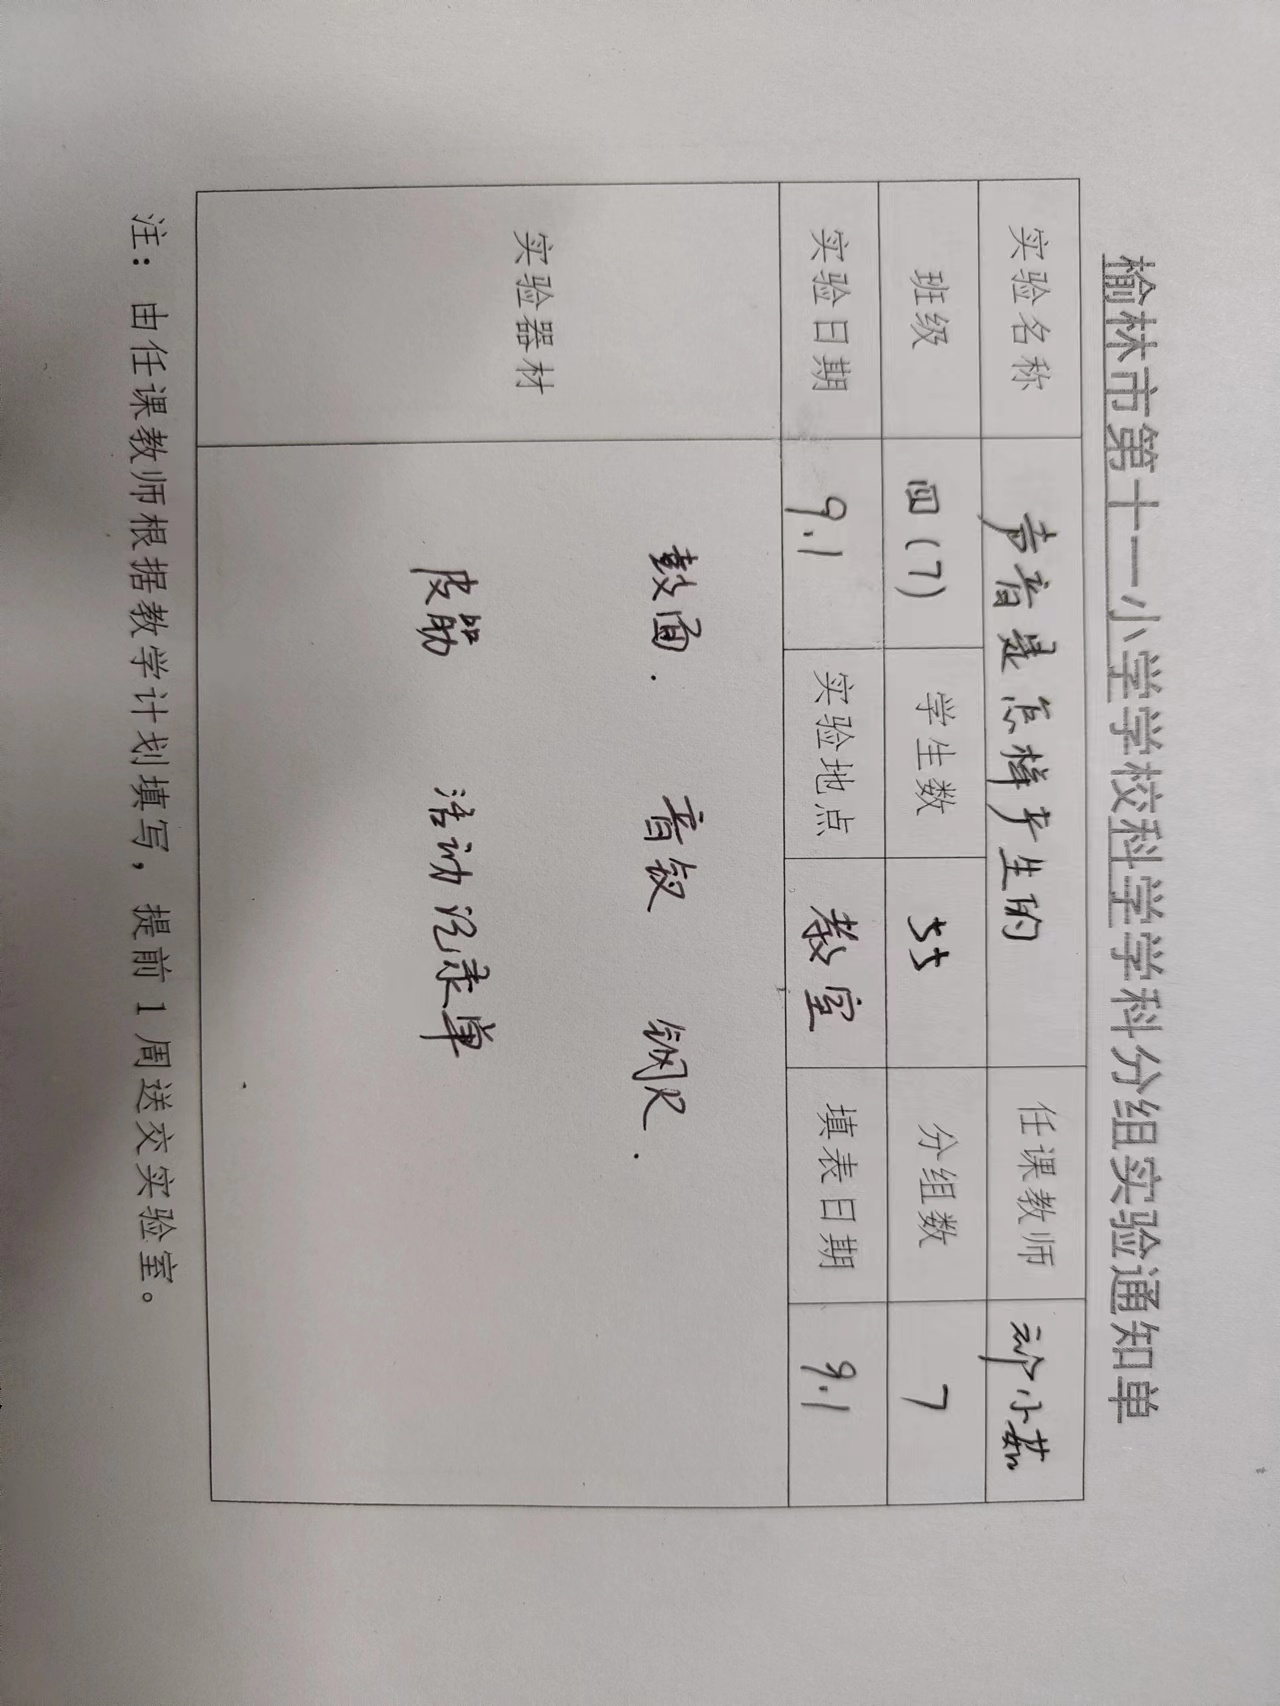 榆林市第十一小学学校科学学科分组实验通知单
实验名称 声音是怎样产生的 任课教师 祁小茹
班级 四(7) 学生数 55 分组数 7
实验日期 9.1 实验地点 教室 填表日期 9.1
实验器材
鼓面. 音钗 钢尺.
皮筋 活动记录单
注：由任课教师根据教学计划填写，提前1周送交实验室。